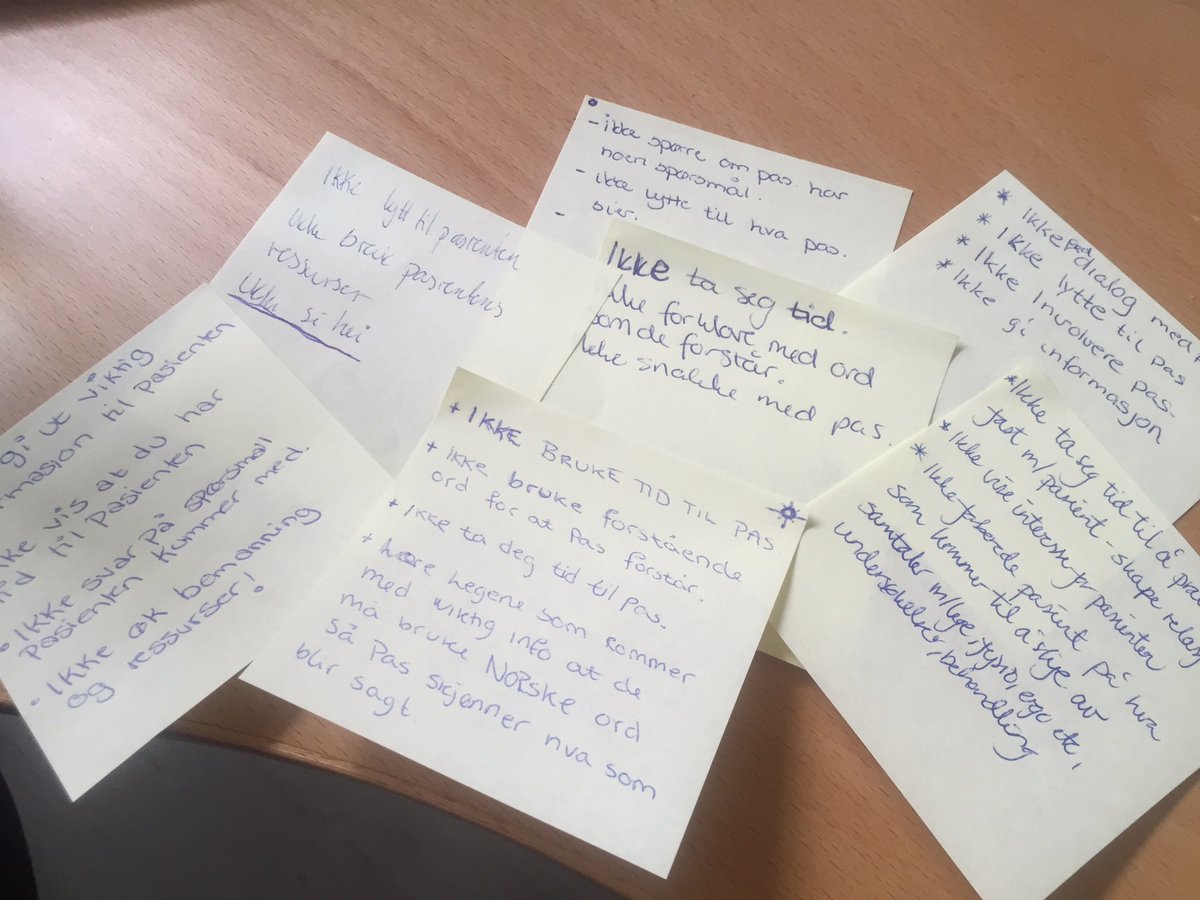 Ikke lytt til pasienten
ikke bruk pasientens
ressurser
ikke si hei
- ikke spørre om pas. har
noen spørsmål.
- ikke lytte til hva pas.
sier.
-
* Ikke dialog med
* Ikke lytte til pas
* Ikke involvere pas.
* Ikke gi informasjon
Ikke ta seg tid.
Ikke forklare med ord
som de forstår.
Ikke snakke med pas.
gi ut viktig
masjon til pasienten
ke vis at du har
tid til pasienten
• Ikke svar på spørsmål
pasienten kommer med.
- Ikke øk bemanning
og ressurser!
+ IKKE BRUKE TID TIL PAS.
+ ikke bruke forstående
ord for at pas forstår.
+ Ikke ta deg tid til pas.
+ legene som kommer
med viktig info at de
må bruke NORSKE ord
så Pas skjønner hva som
blir sagt
* Ikke ta seg tid til å pra
fast m/pasient - skape relasj
* Ikke vise interesse for pasienten
* Ikke forberede pasient på hva
som kommer til å skje av
samtaler m/lege, fysio, ergo etc,
undersøkelser, behandling